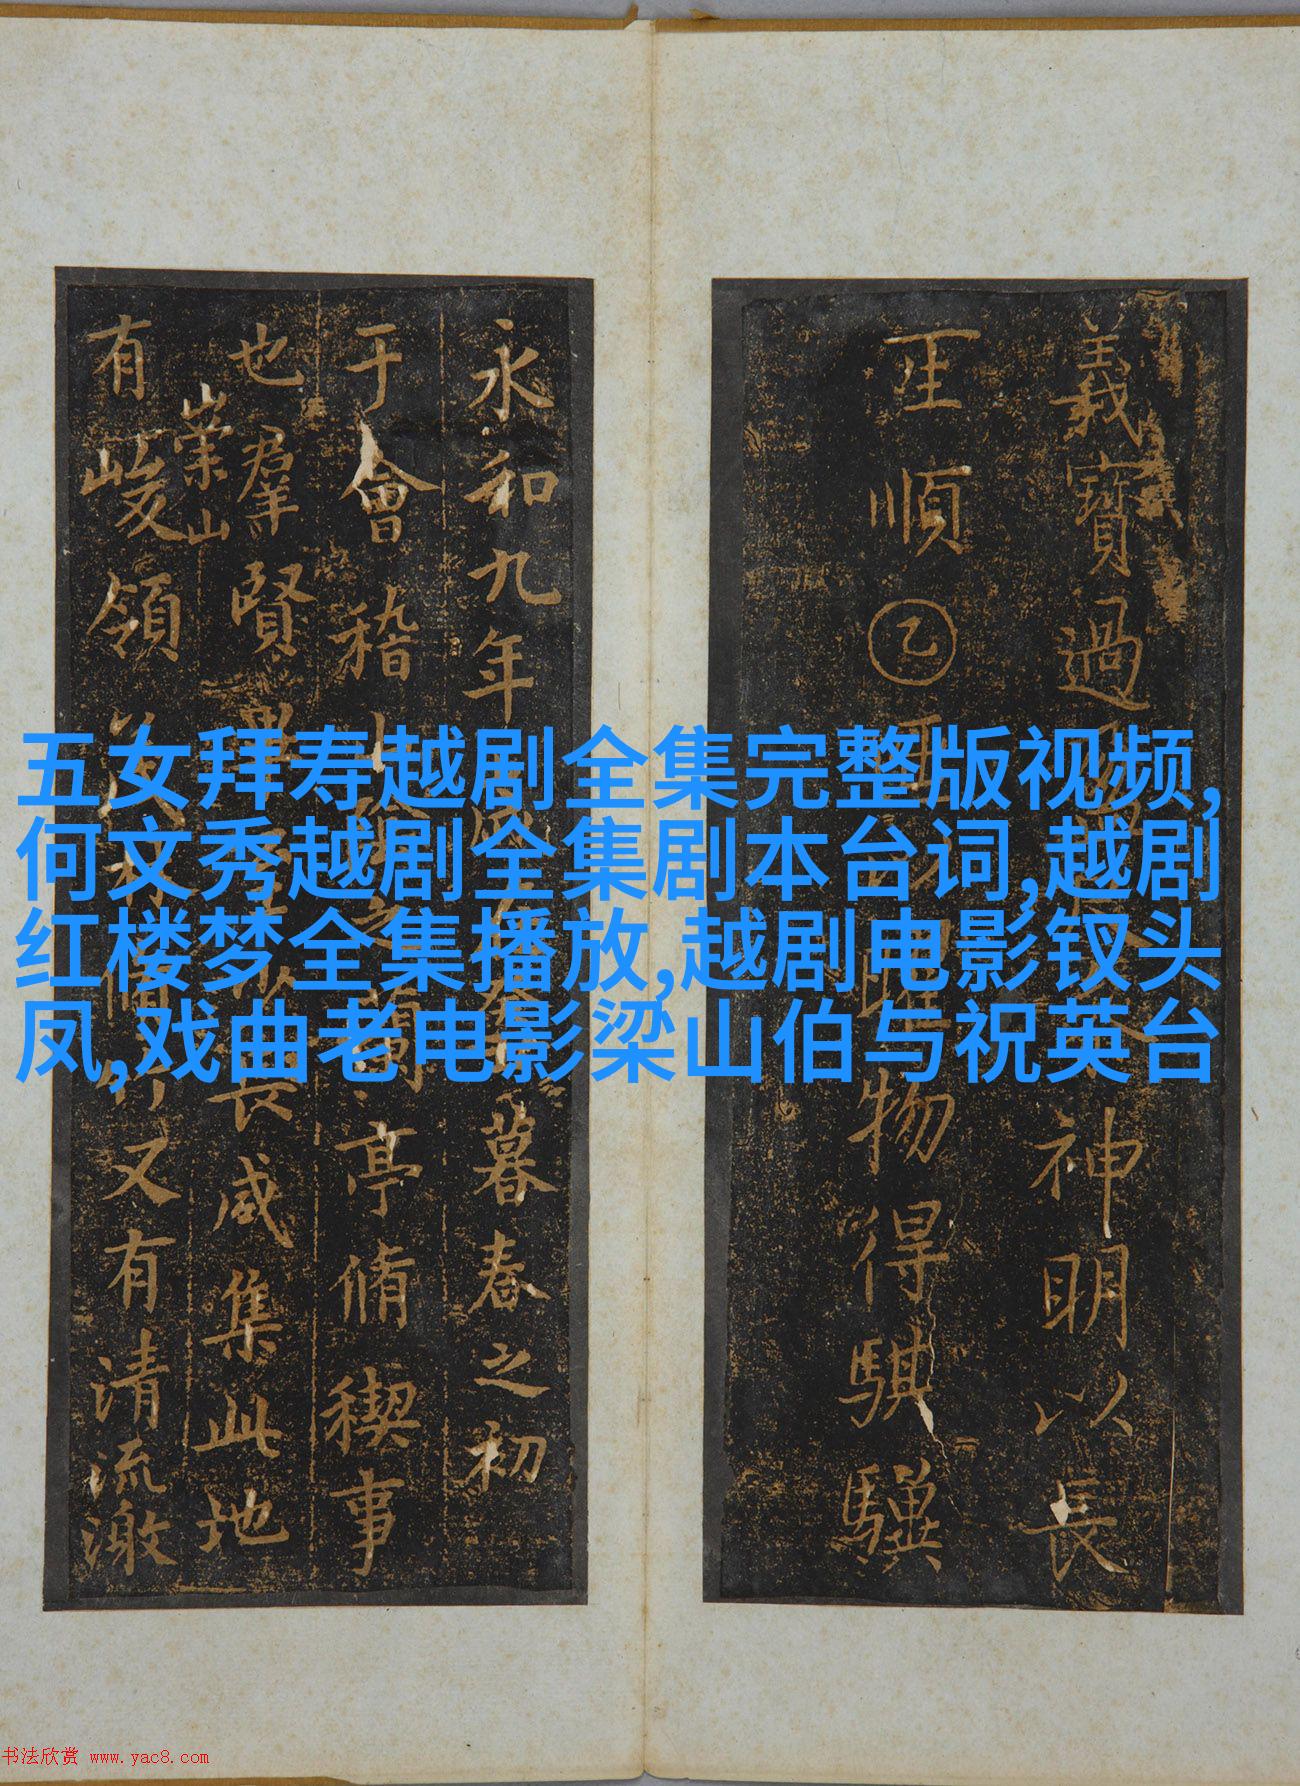 五女拜寿越剧全集完整版视频,
何文秀越剧全集剧本台词,越剧
红楼梦全集播放,越剧电影钗头
凤,戏曲老电影梁山伯与祝英台
義寶過神明以長
順乙物得騏驥
永和九年暮春之初
于會稽之亭脩禊事
也羣賢長咸集此地
崇山
有峻領又有清流激
书法欣赏 www.yac8.com